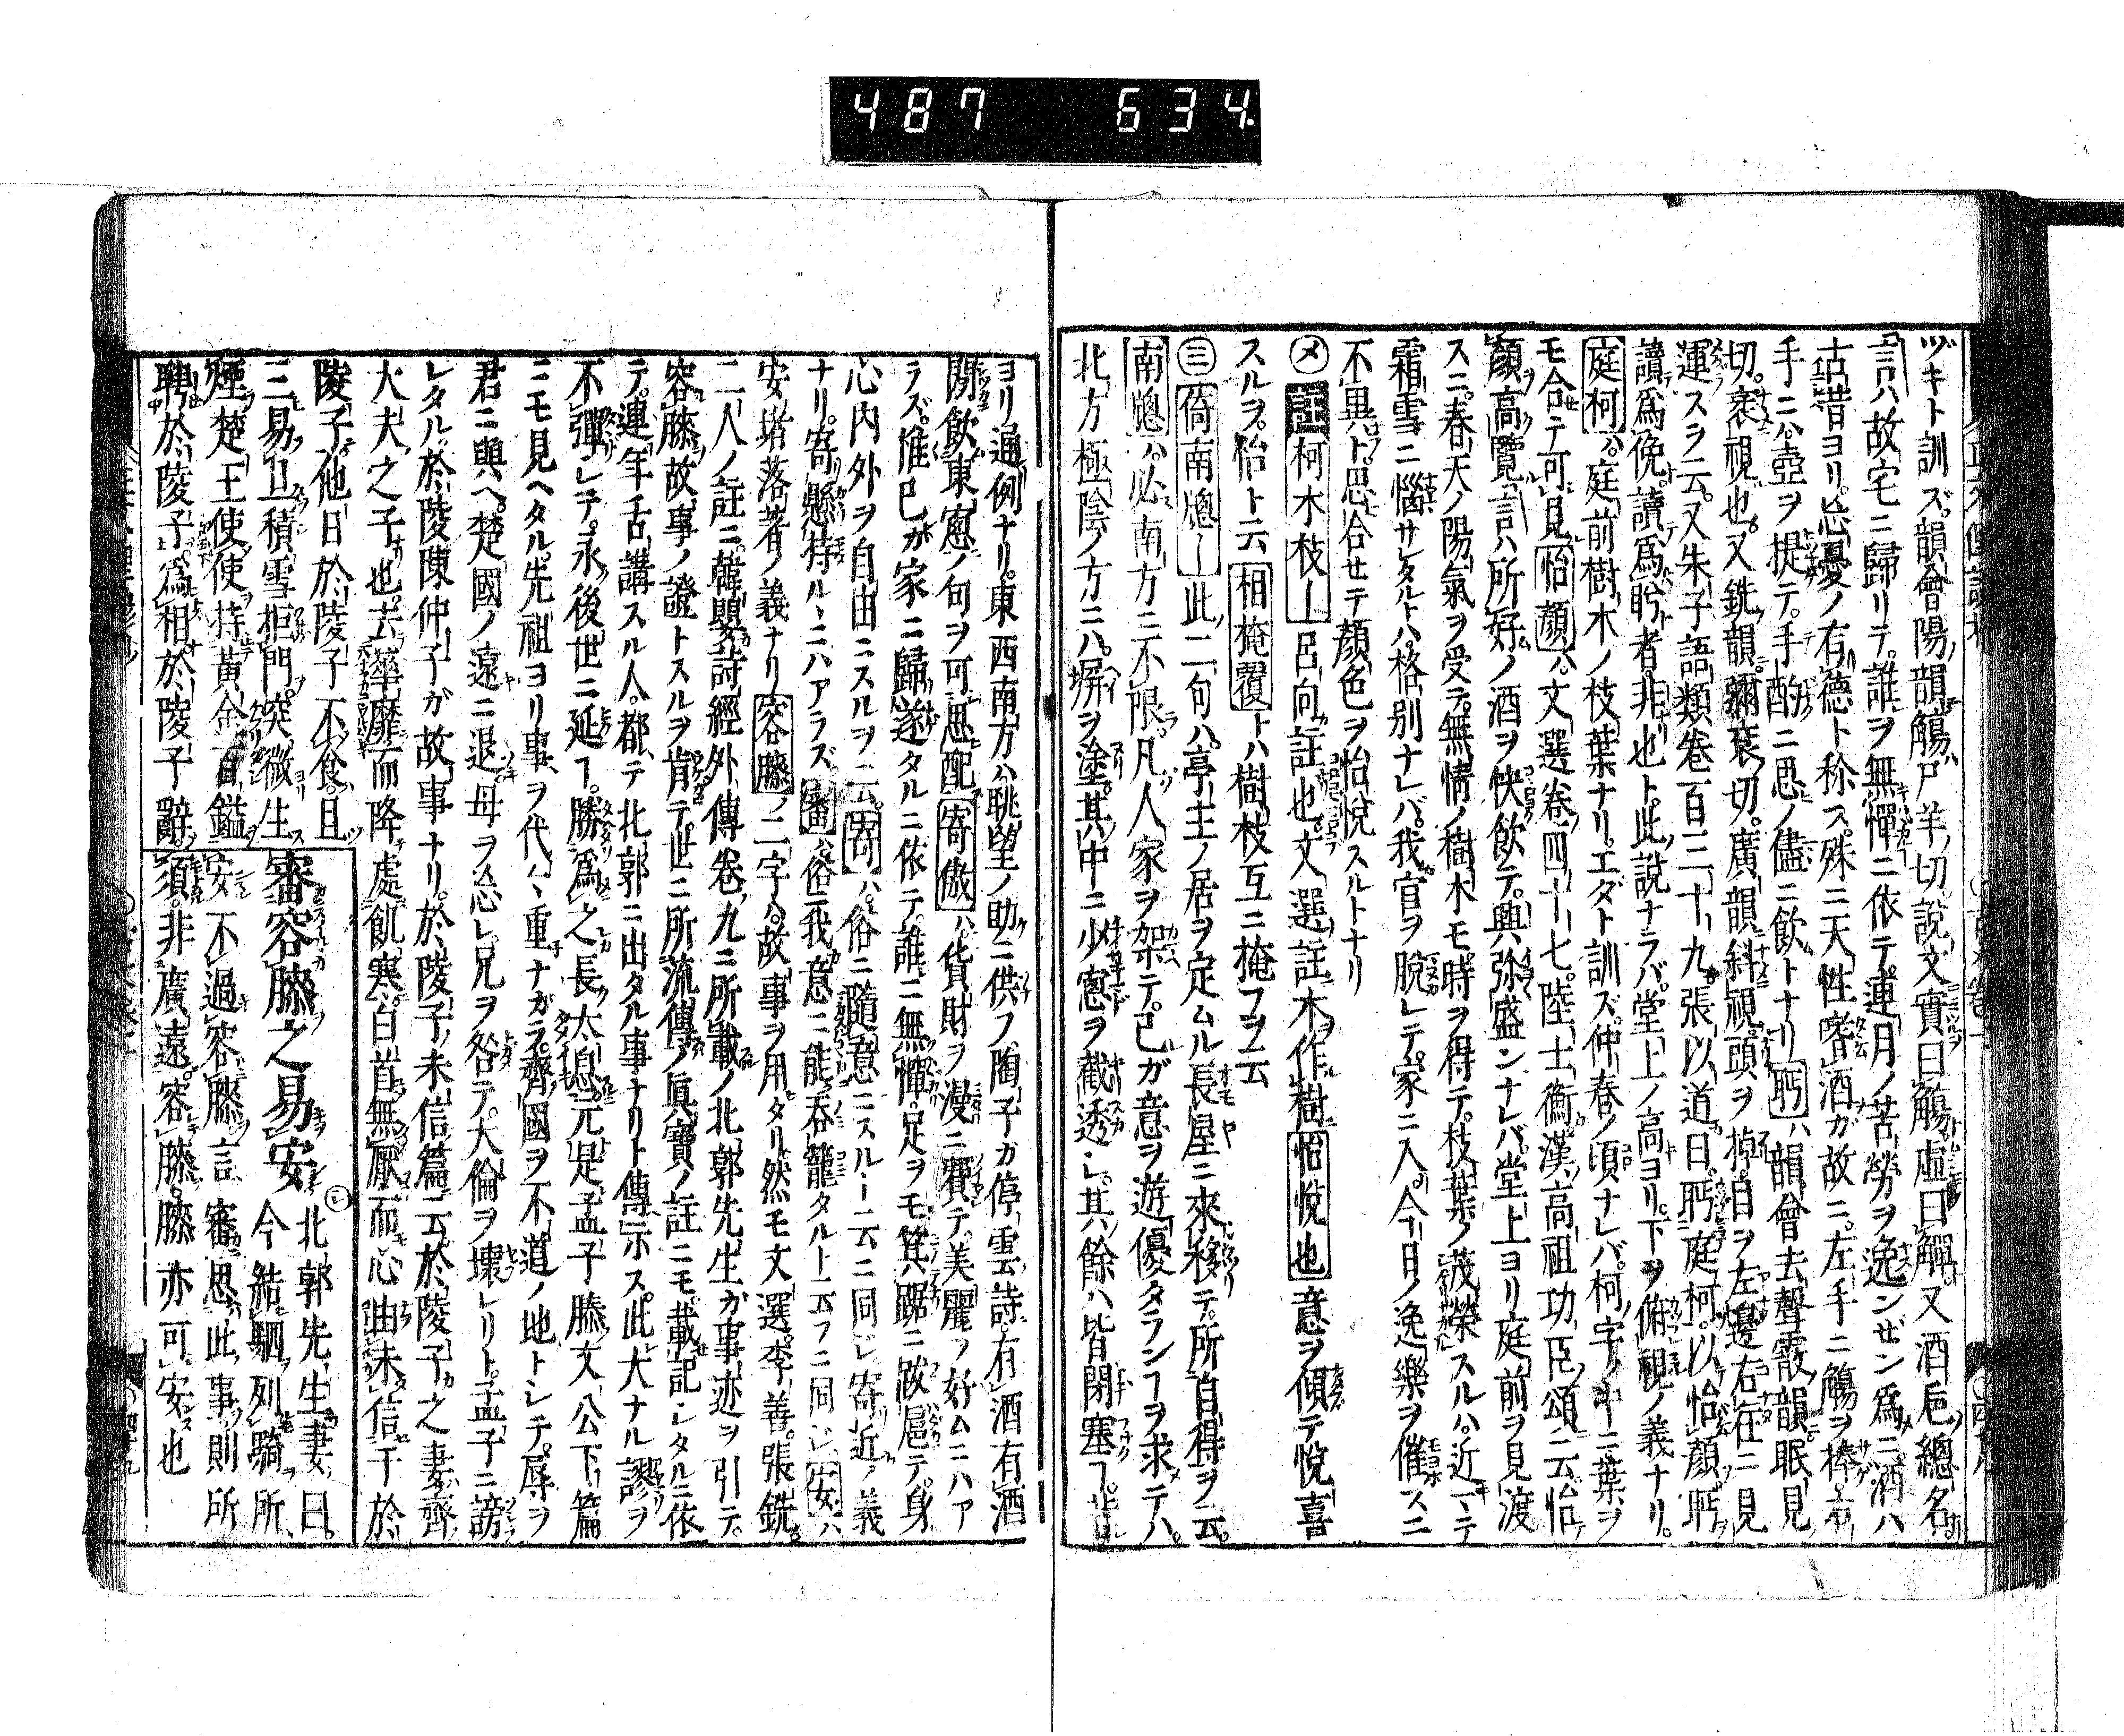 487 634.
ヅキト訓ズ。韻會陽韻觴尸羊切。説文實曰觴。虚曰觶。又酒巵總名。
言ハ故宅ニ歸リテ。誰ヲ無憚ニ依テ。連月ノ苦勞ヲ逸ンゼン爲ニ。酒ハ
古昔ヨリ。忘憂ノ有德ト称ス。殊ニ天性嗜酒ガ故ニ。左手ニ觴ヲ棒ゲ。右
手ニハ壺ヲ提テ。手酌ニ思ノ儘ニ飲トナリ 眄ハ韻會去聲霰韻眠見
切。衺視也。又銑韻。彌袞切。廣韻斜視。頭ヲ掉。目ヲ左邊右在ニ見
運スヲ云。又朱子語類巻百三十九。張以道曰。眄庭柯。以怡顔。眄
讀爲俛。讀爲眄者。非也ト。此説ナラバ。堂上ノ高ヨリ。下ヲ俯視ノ義ナリ。
庭柯ハ。庭前樹木ノ枝葉ナリ。エダト訓ズ。仲春ノ頃ナレバ。柯字ノ中ニ葉ヲ
モ合テ可見 怡顔ハ。文選巻四十七。陸士衡漢高祖功臣頌ニ云怡
顔高覽。言ハ所好ノ酒ヲ快飲テ。興弥盛ンナレバ。堂上ヨリ庭前ヲ見渡
スニ。春天ノ陽氣ヲ受テ。無情ノ樹木モ。時ヲ得テ。枝葉ノ茂榮スルハ。近ニテ
霜雪ニ惱サレタルトハ。格別ナレバ。我官ヲ脱レテ。家ニ入。今日ノ逸樂ヲ催スニ
不異ト。思合セテ顔色ヲ怡悦スルトナリ
メ 註 柯木枝ー 呂向註也。文選註木作樹 怡悦也 意ヲ傾テ悦喜
スルヲ。怡ト云 相掩覆トハ樹枝互ニ掩フヲ云
三 倚南牕ー 此二句ハ。亭主ノ居ヲ定ムル長屋ニ來移テ。所自得ヲ云。
南牕ハ。必南方ニ不限。凡人家ヲ架テ。己ガ意ヲ遊優タランヿヲ求テハ。
北方極陰ノ方ニハ。塀ヲ塗。其中ニ少窓ヲ截透シ。其餘ハ皆閉塞ヿ。
ヨリ通例ナリ。東西南方ハ眺望ノ助ニ供フ。陶子ガ停雲詩。有酒有酒
閑飲東窓ノ句ヲ可思配 寄傲ハ。貨財ヲ漫ニ費テ。美麗ヲ好ムニハア
ラズ。惟己ガ家ニ歸遂タルニ依テ。誰ニ無憚。足ヲモ箕踞ニ跋扈テ。身
心内外ヲ自由ニスルヲ云。寄ハ。俗ニ隨意ニスルー云ニ同ジ。寄近ノ義
ナリ。寄懸特ルヽニハアラズ 審ハ俗ニ我意ニ能呑籠タルー云フニ同ジ 安ハ
安堵落著ノ義ナリ 容膝ノ二字ハ。故事ヲ用タリ。然モ文選。李善。張銑。
二人ノ註ニ。韓嬰詩經外傳巻九ニ所載ノ北郭先生ガ事迹ヲ引テ。
容膝故事ノ證トスルヲ肯テ。世ニ所流傳ノ眞寶ノ註ニモ。載記レタルニ依
テ。連年舌講スル人。都テ北郭ニ出タル事ナリト傳示ス。此大ナル謬ヲ
不彈シテ。永後世ニ延ヿ。勝爲之長太息。元是孟子滕文公下篇
ニモ見ヘタル。先祖ヨリ事ヲ代々重ナガラ。齊國ヲ不道ノ地トシテ。辱ヲ
君ニ與ヘ。楚國ノ遠ニ退。母ヲ忘レ兄ヲ咎テ。大倫ヲ壞レリト。孟子ニ謗
レタル。於陵陳仲子ガ故事ナリ。於陵子。未信篇云。於陵子之妻。齊
大夫之子也。去華靡而降處飢寒。白首無厭而心由未信于於
陵子。他日於陵子不食。且
三易旦。積雪拒門。突微生
煙。楚王使使持黃金百鎰
聘於陵子。爲相。於陵子辭。
審容膝之易安 三 北郭先生妻曰。
今結駟列騎所
安不過容膝。言審思此事。則所
須非廣遠。容膝。膝亦可安也